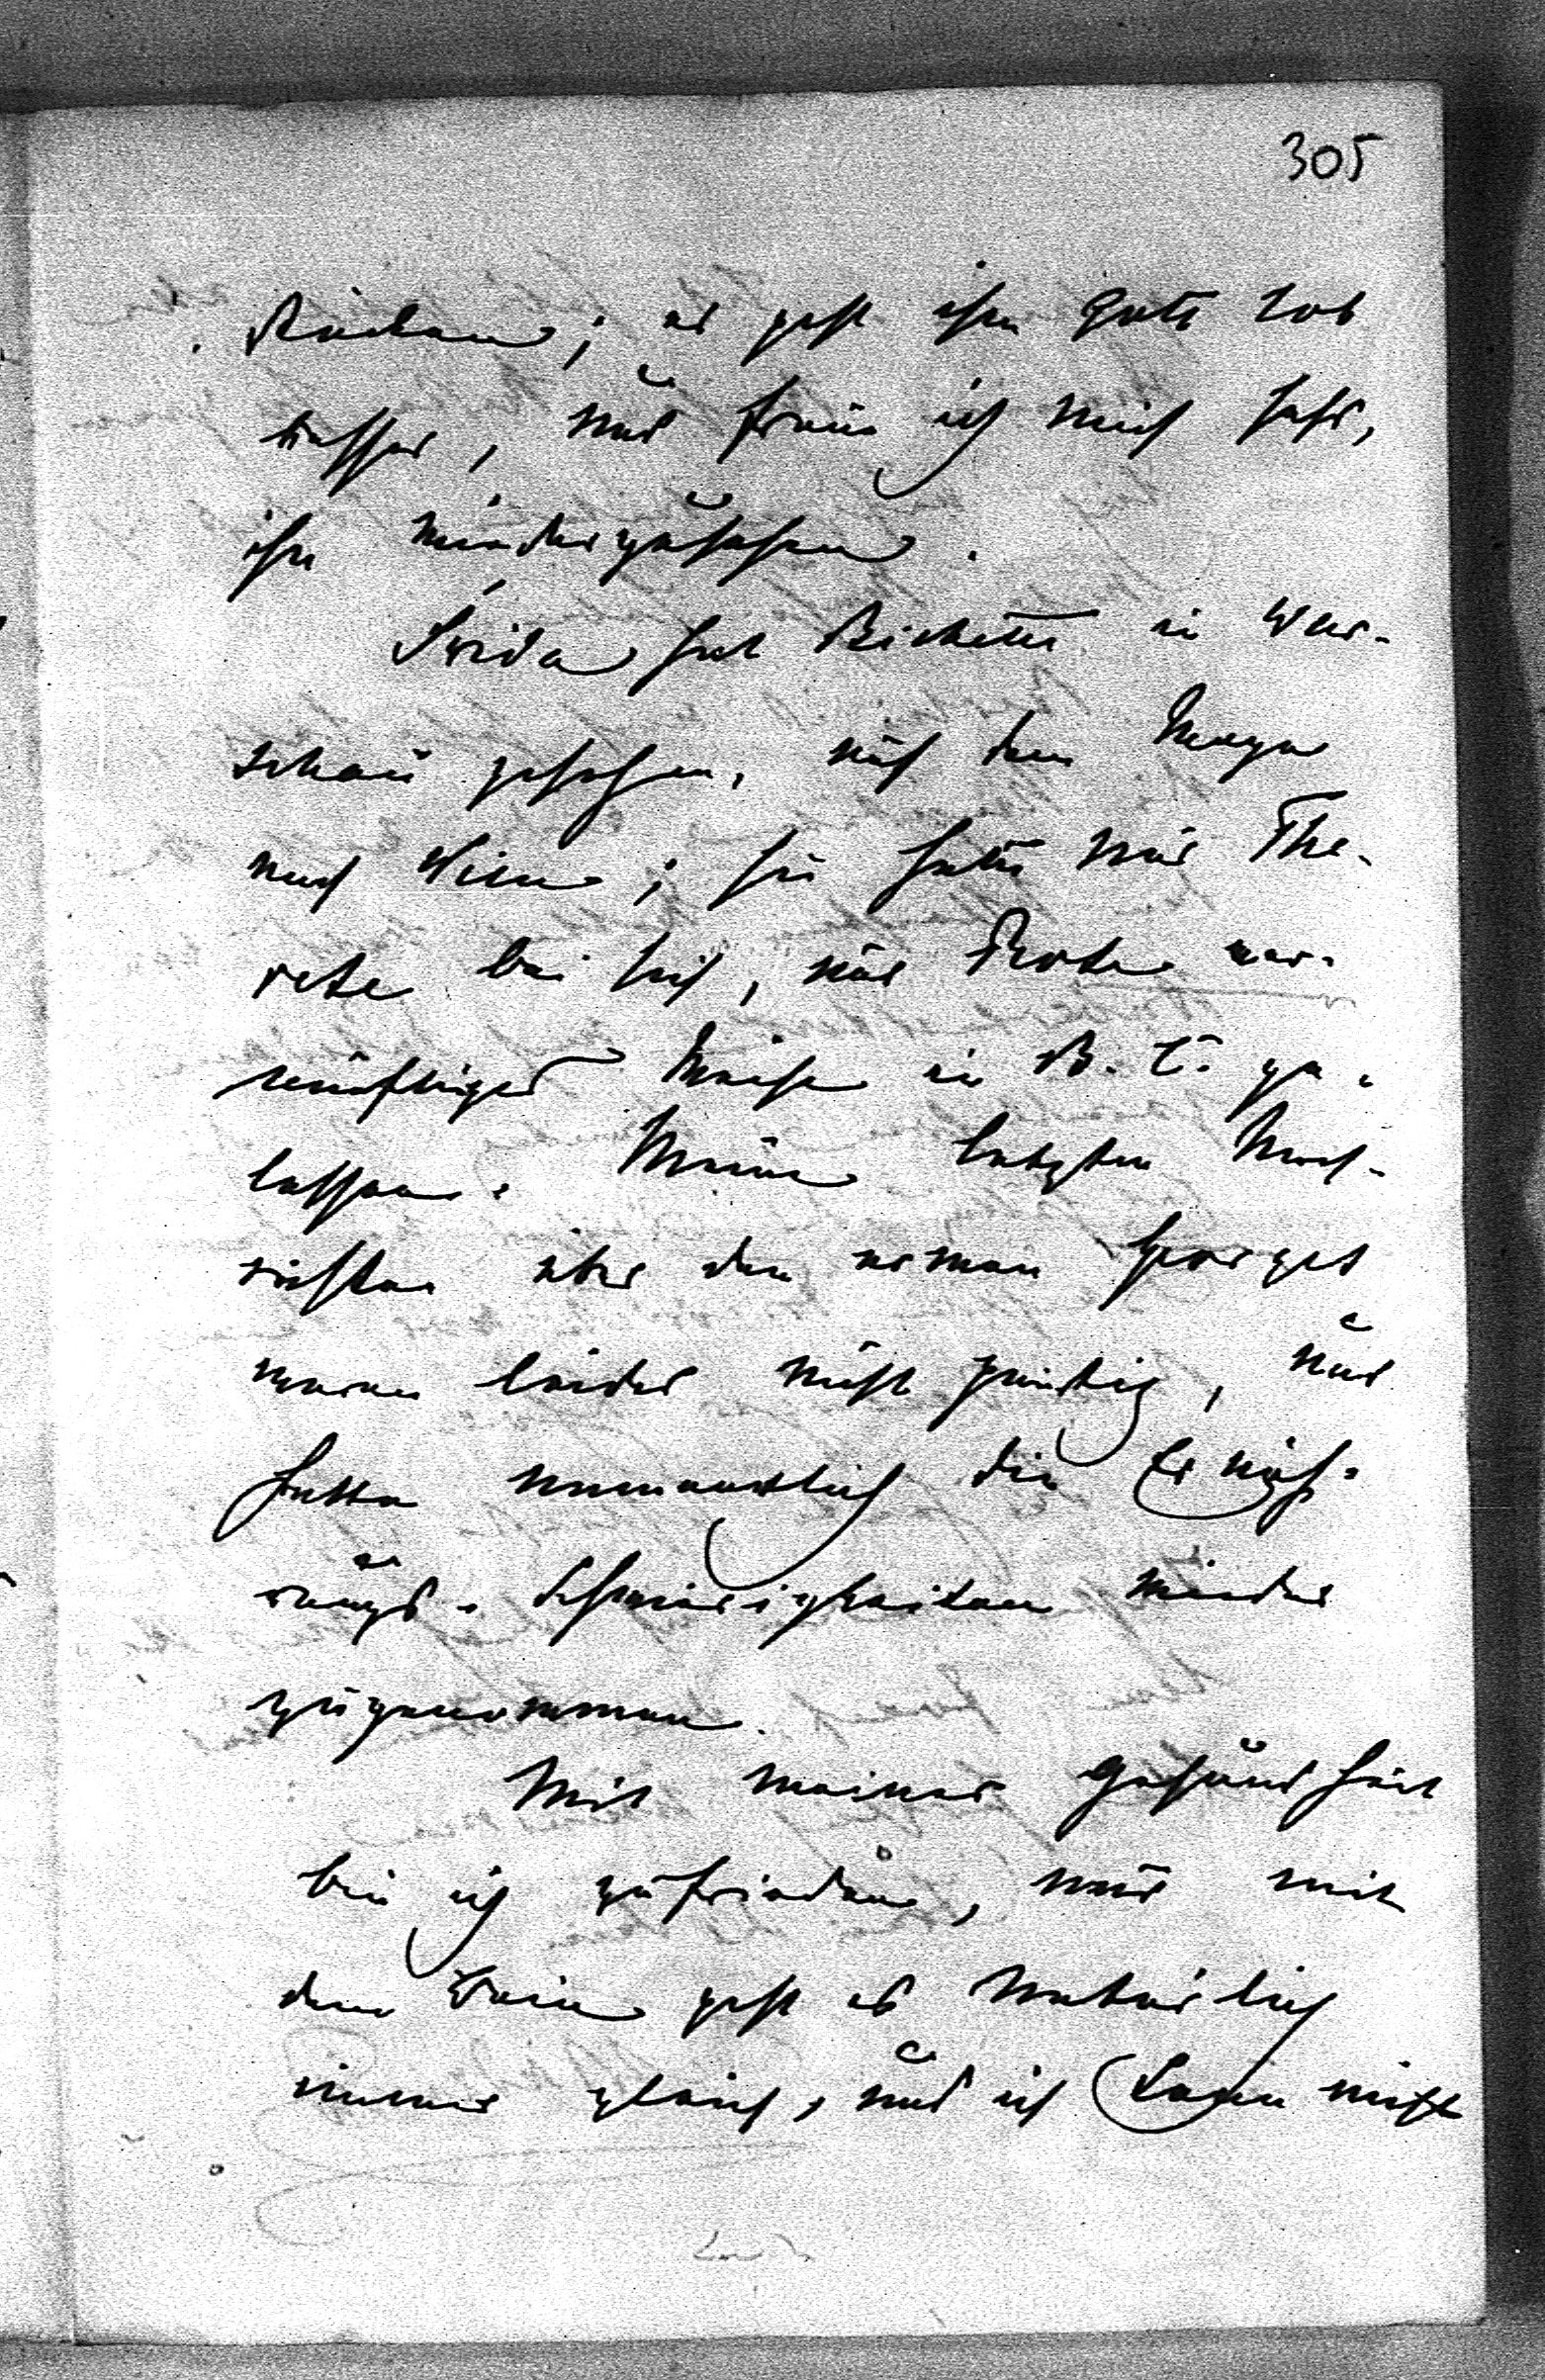 305
; es geht ihm Gott Lob
besser, und freue ich mich sehr,
ihn wiederzusehen.
Frida hat Bichette in War-
schau gesehen, auf dem Wege
nach Wien; sie hatte nur The-
rese bei sich, und
vernünftiger Weise in B. C. ge-
lassen. Meine letzten Nach-
richten über den armen Georges
waren leider nicht günstig, und
hatten namentlich die Ernäh-
rungs-Schwierigkeiten wieder
zugenommen.
Mit meiner Gesundheit
bin ich zufrieden, nur mit
dem Bein geht es natürlich
immer gleich, und ich kann nicht